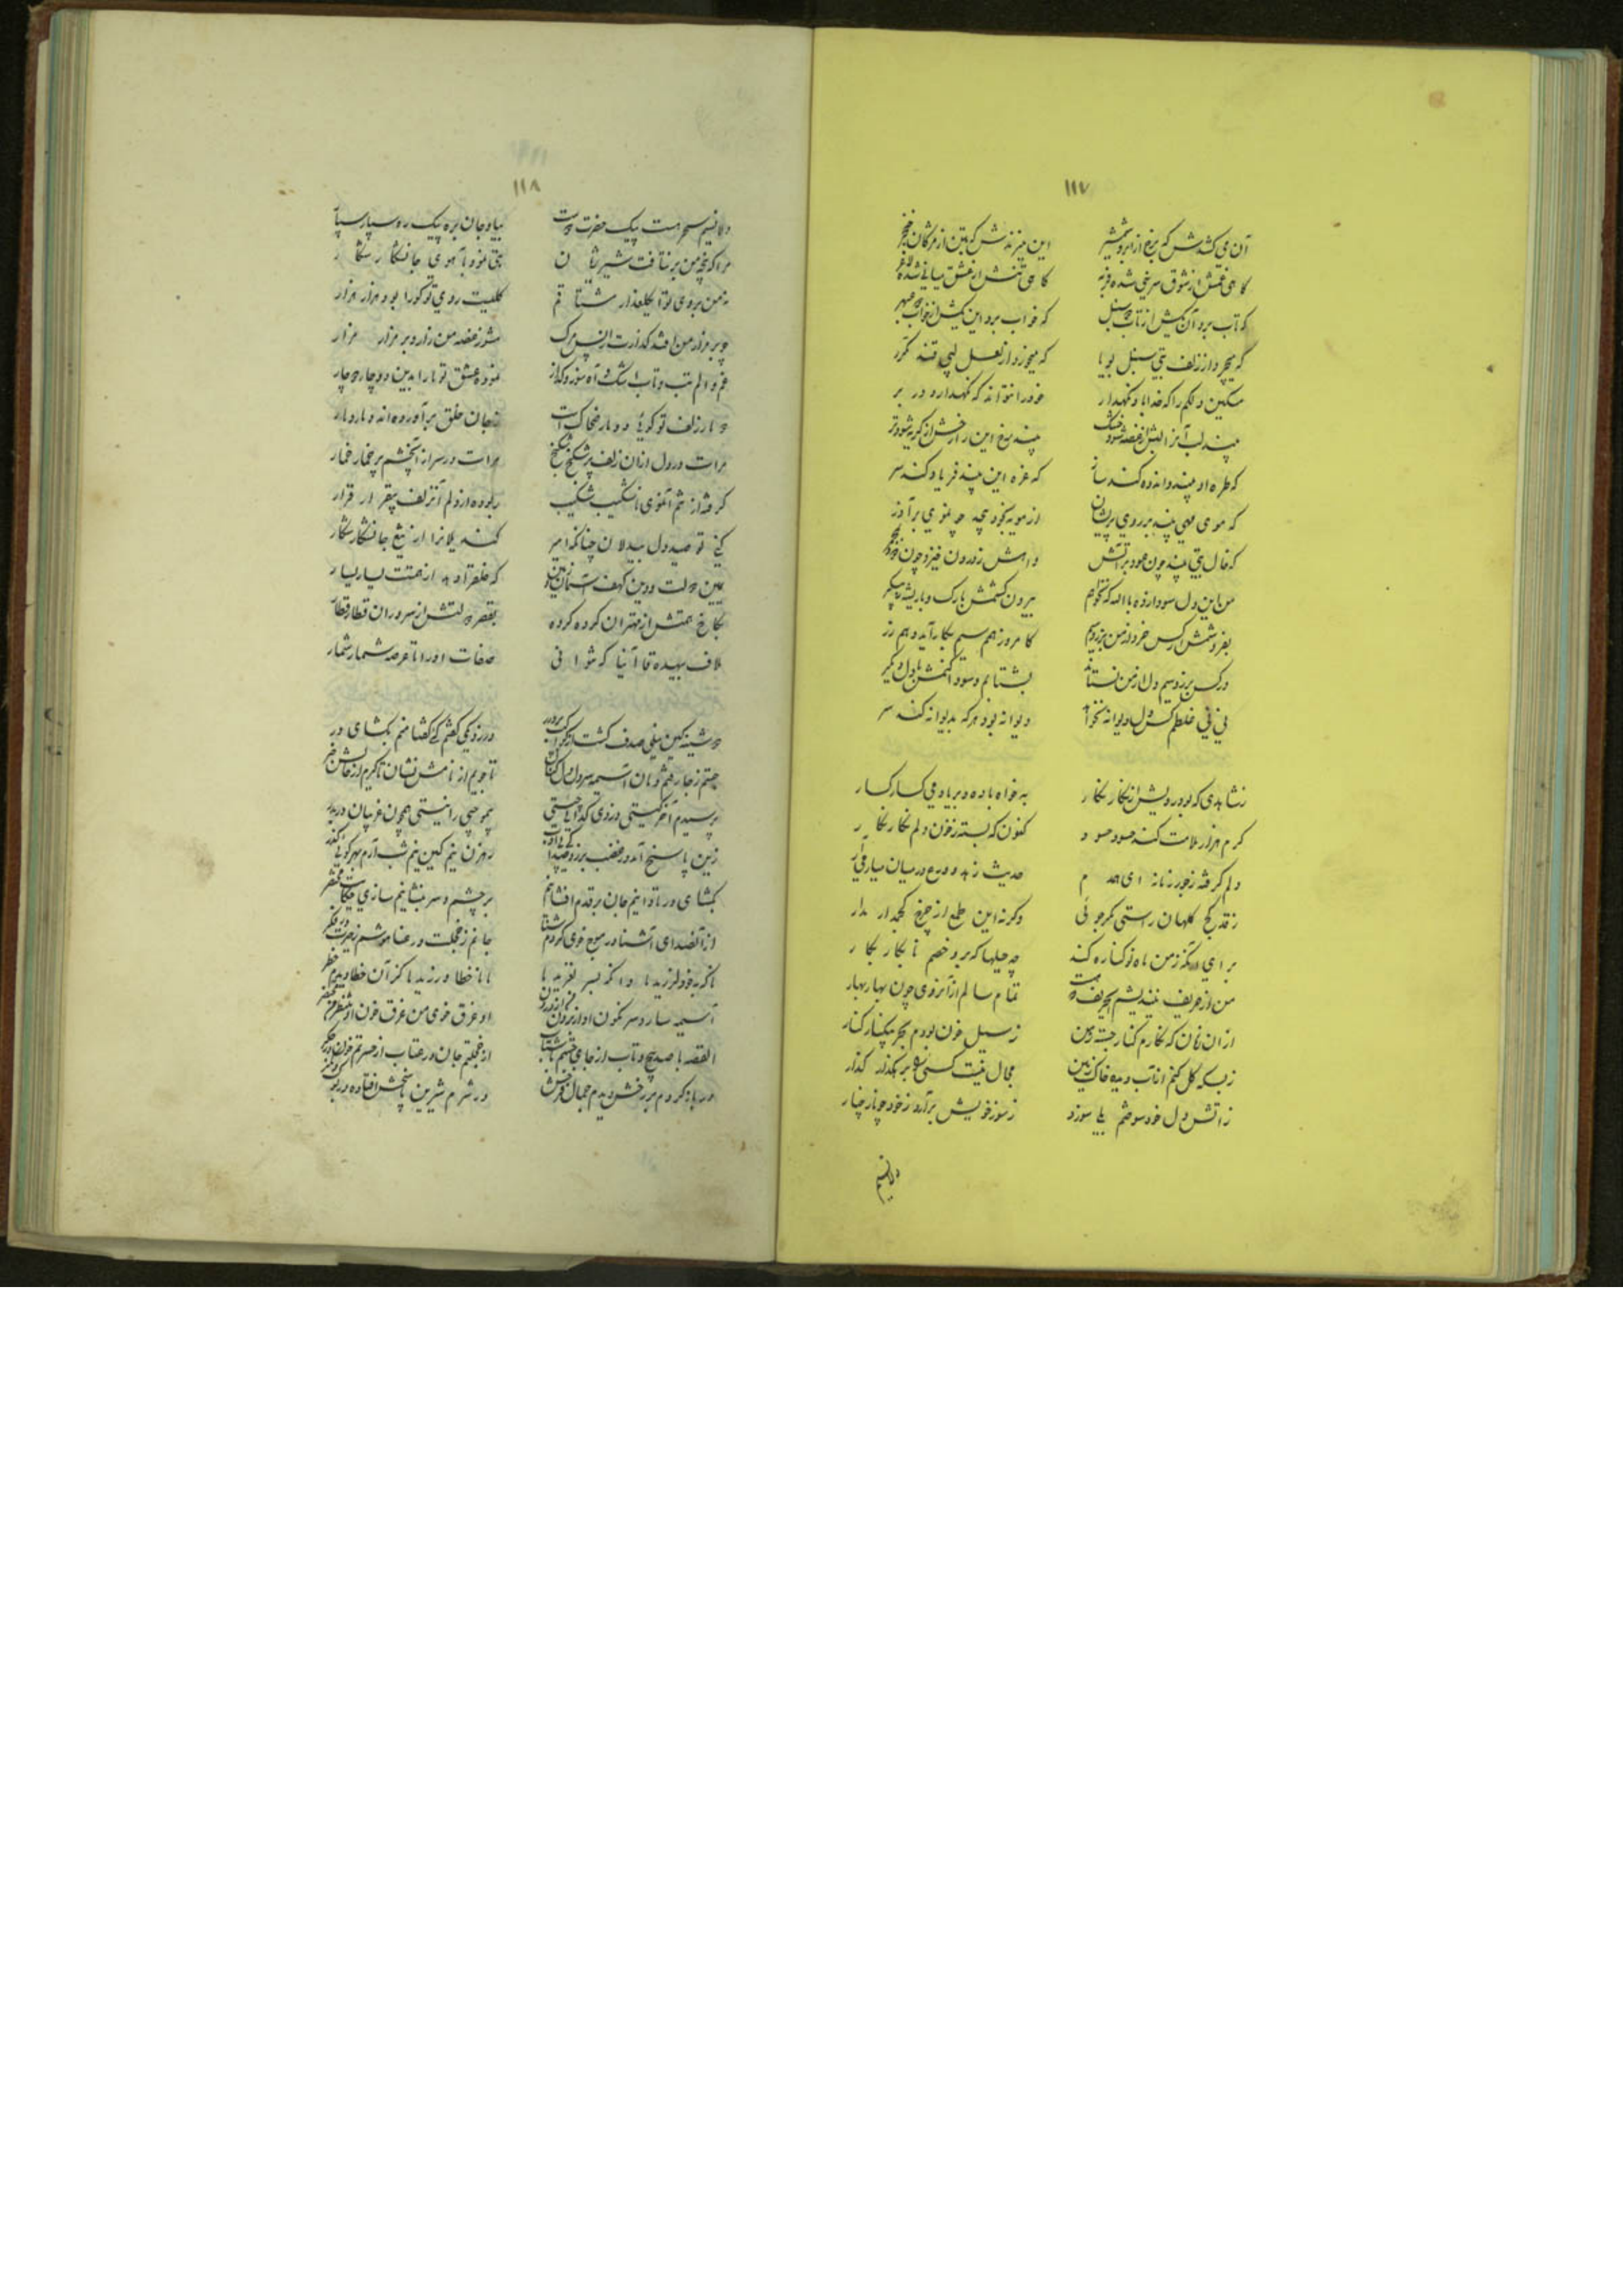 ۱۱۷
آن می کشدش که بزغ از ابرو شمشیر این میزندش که بتن از مژگان خنجر
گاهی غمش از شوق سرینی شده فربه گاهی تنش از عشق میانی شده لاغر
که تاب برد آن یکیش از تاب دو سنبل که خواب برد این یکیش از خواب دو عبهر
که میچرد از زلف بتی سنبل بویا که میخورد از لعل لبی قند مکرر
مسکین دلکم را که خدا باد نگهدار خود را نتواند که نگهدارد در بر
بیند لب آنرا لبش از غصه شود خشک بیند رخ این را رخش از گریه شود تر
که طره او بیند و اندوه کند ساز که غره این بیند فریاد کند سر
که موی مهی بیند بر روی پریشان از مویه بخود پیچد و موی برآرد
که خال بتی بیند چون عود بر آتش و آهش ز درون خیزد چون دود ز مجمر
من این دل سودازده بالله که نخواهم بیرون کشمش تارک و با ریشه ز پیکر
بفروشمش ار کس خرد از من بزر و سیم کامروز هم سیم بکار آید و هم زر
ور کس بزر و سیم دل از من نستاند بشتابم و سودا کنمش با دل دیگر
نی نی غلطم کس دل دیوانه نخواهد دیوانه بود هر که بدیوانه کند سر
ز شاهدی که بود رویش از نگار نگار بخواه باده و بر یاد می گسار گسار
کرم هزار ملامت کند حسود حسود کنون که بسته ز خون دلم نگار نگار
دلم گرفته ز جور زمانه ای همدم حدیث زهد و ورع در میان میار
ز قد کج کلهان راستی مگر جوئی وگرنه این طمع از چرخ کجمدار مدار
برای آنکه ز من ماه نو کناره کند چه حیلها که برد خصم نابکار بکار
من از حریف نیندیشم تمام سالم از آنروی چون بهار بهار
از ان زمان که نگارم کنار جست ز من ز سیل خون بودم بحر بیکنار کنار
ز بسکه گل کنم از آب دیده خاک زمین مجال نیست کسی را بر هگذار گذار
ز آتش دل خود سوختم بلی سوزد ز سوز خویش برآرد ز خود چو نار چنار
دلا نسیم
۱۱۸
دلا نسیم سحر هست پیک حضرت دوست بیا و جان بره پیک ره سپار سپار
مرا که پنجه من برنتافت شیر ژیان بتی نمود بآهوی جانشکار شکار
نه من بروی تو ای گلعذار مشتاقم کلیست روی تو کورا بود هزار هزار
چو بر مزار من افتد گذارت از پس مرگ مشو ز غصه من زار و بر مزار مزار
غم و الم تب و تاب اشک و آه سوز و گداز نموده عشق تو ما را بدین دوچار دوچار
دو مار زلف تو گوئی دو مار ضحاک است ز جان خلق برآورده اند دمار دمار
مراست در دل از ان زلف پر شکنج شکنج مراست در سر از آنچشم پر خمار خمار
گرفته از تنم آنموی ناشکیب شکیب ربوده از دلم آنزلف بیقرار قرار
کنی تو صید دل بیدلان چنانکه امیر کند یلانرا از تیغ جانشکار شکار
معین دولت و دین کهف آسمان و زمین که خلق را دهد از همتت یسار یسار
بکاخ همتش از مهتران گروه گروه بقصر دولتش از سروران قطار قطار
ملاف بیهده قاآنیا که نتوانی صفات او را تا عرصه شمار شمار
دوشینه کین نیلی صدف گشت از کواکب پر درر در زد یکی گفتم که گفتا منم بگشای در
جستم ز جا رفتم دمان آسیمه سر دل دل کنان تا جویم از نامش نشان تا گیرم از حالش خبر
پرسیدم آخر کیستی دزدی گدائی چیستی بهر چه برپا نیستی همچون غریبان در بدر
زین پاسخ آمد در غضب بر زد صدا کای بی ادب رهزن نیم کین نیم شب آرم بهر کوئی گذر
بگشای در تا دانیم جان بر قدم افشانیم بر چشم و سر بنشانیم سازی حکایت مختصر
از آنصدای آشنا در موج خوی کردم شنا جانم ز خجلت در عنا هوشم ز حیرت در
ناگه بخود لرزید پا وانگه بسر لغزید پا با خطا ورزید پا کز آن خطا دیدم خطر
آسیمه سار و سرنگون او از برون من از درون او غرق خوی من غرق خون او منتظر من محتضر
القصه با صد پیچ و تاب از جای جستم با شتاب از خجلتم جان در عتاب از حسرتم خون در جگر
در باز کردم بر رخش دیدم جمال فرخش در شرم شیرین پاسخش افتاده در بوک و مگر